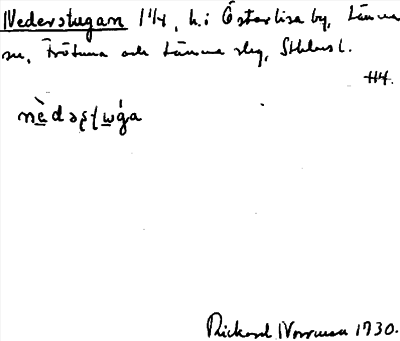 Nederstugan 1⅟4, h. i Österlisa by, Länna
sn, Frötuna och Länna slg, Sthlms l.
H4.
nèdəʂʈɯga
Rickard Norrman 1930.